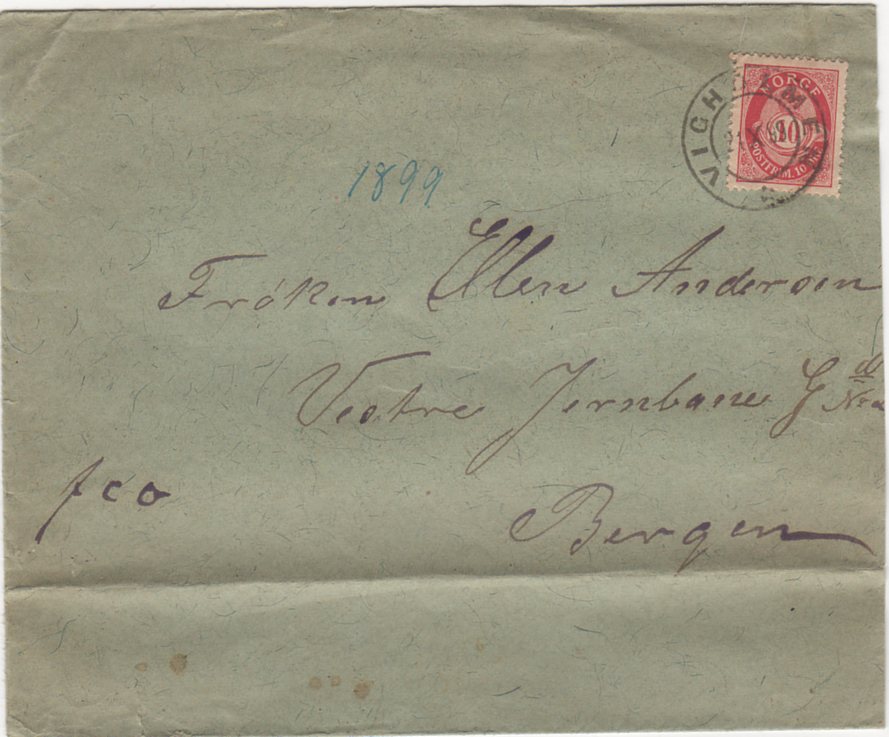 NORGE
10
POSTFRIM. 10 ØRE
VIGHOLMEN
1899
Frøken Ellen Andersen
Vestre Jernbane G
fco
Bergen